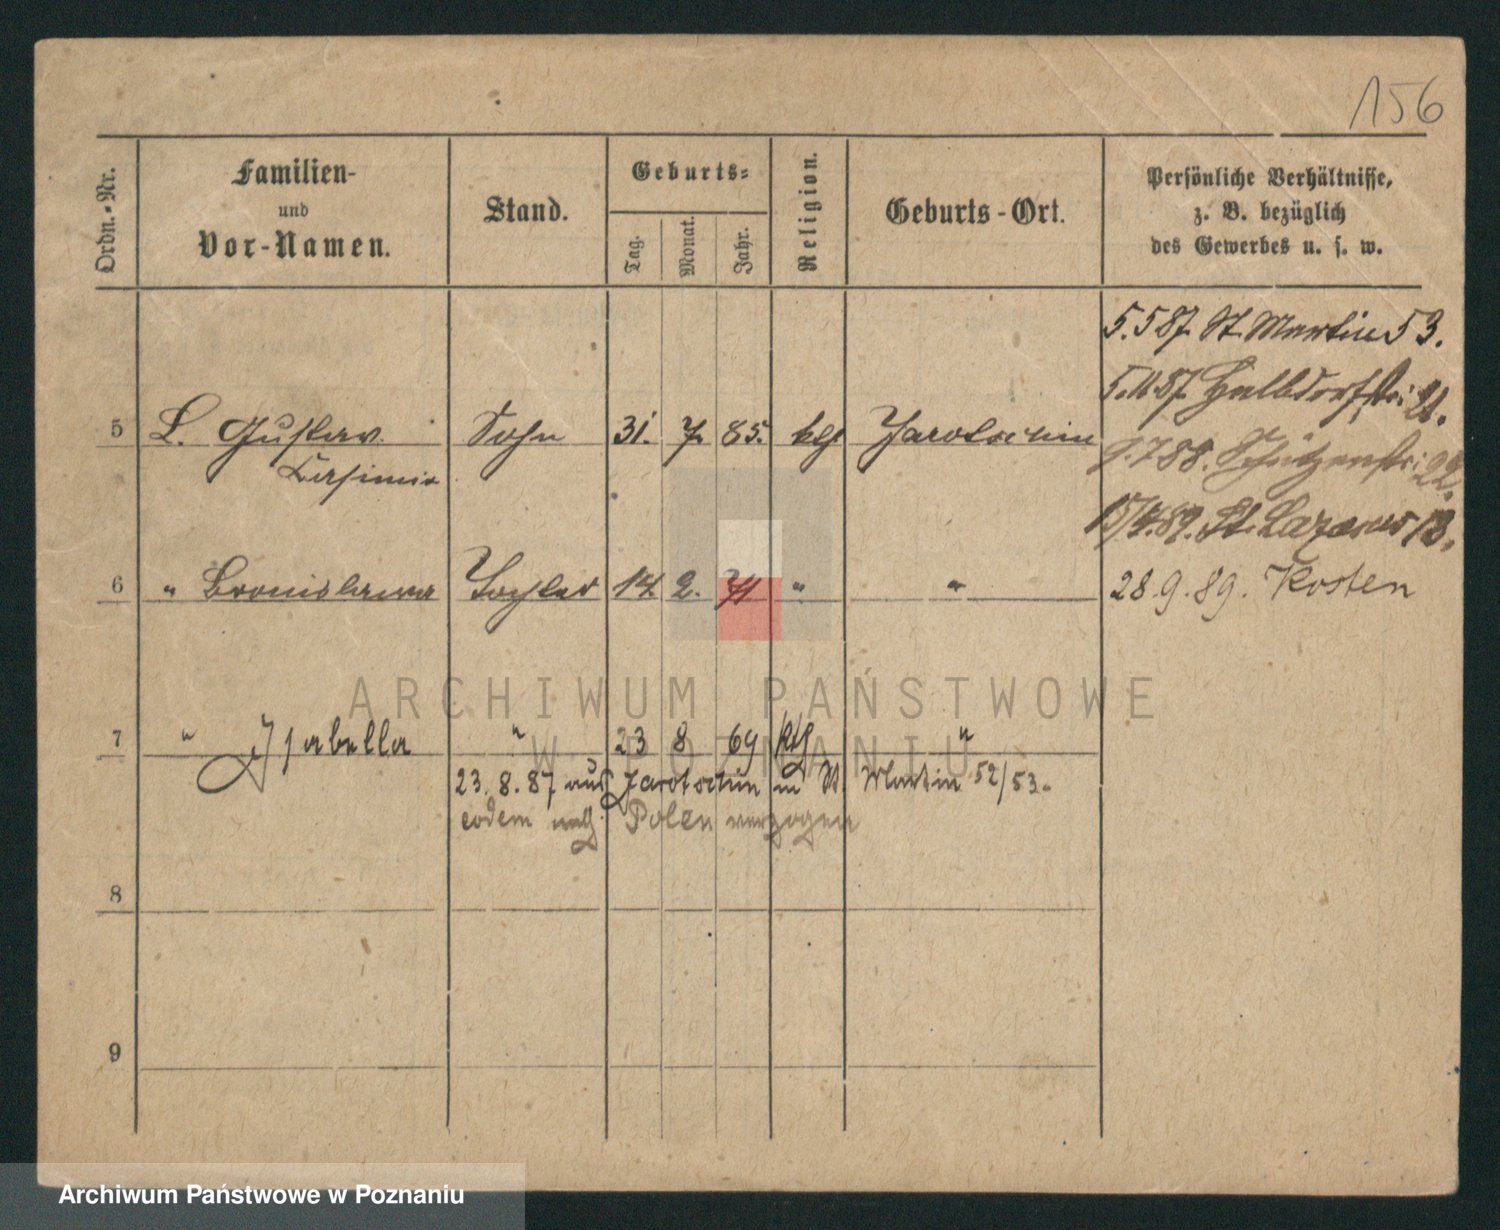 156
Ordn.-Nr.
Familien-
und
Vor-Namen.
Stand.
Geburts-
Tag.
Monat.
Jahr.
Religion.
Geburts-Ort.
Persönliche Verhältnisse,
z. B. bezüglich
des Gewerbes u. s. w.
5.5 87. St. Martin 53.
5.11.87. Halbdorfstr: 21.
9.7 88. Schützenstr: 22.
5 L. Gustav Sohn 31. 7. 85. klh Jarotschin
Casimir
15/4.89. St. Lazarus 13.
6 " Bronislawa Tochter 14 2. 71 " "
28.9.89. Kosten
7 " Isabella " 23 8 69 kth "
23.8.87 aus Jarotschin in St. Martin 52/53.
eodem nach Polen verzogen
8
9
ARCHIWUM PAŃSTWOWE
W POZNANIU
Archiwum Państwowe w Poznaniu